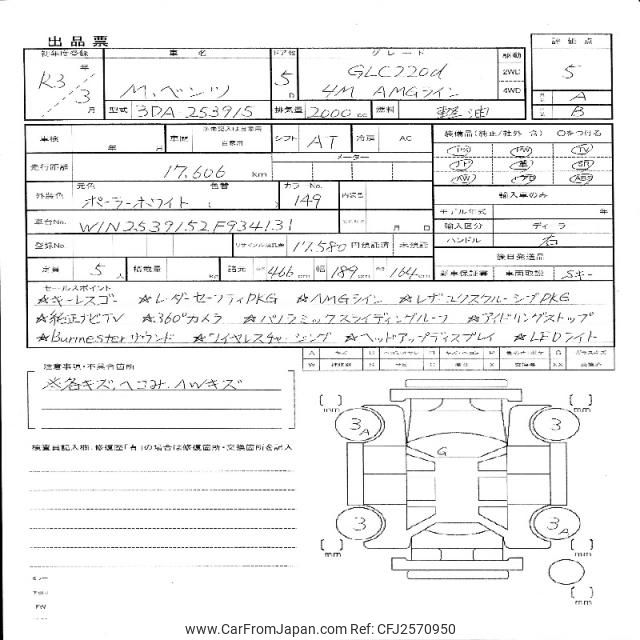 出品票
初年度登録 車名 ドア数 グレード 駆動 評価点
R3年 3月 M.ベンツ 5D GLC220d 2WD 5
4M AMGライン 4WD A
型式 3DA 253915 排気量 2000cc 燃料 軽油 B
車検 年 月 車歴 自家用 シフト AT 冷房 AC 装備品(純正/社外 含) ○をつける
走行距離 17,606 km メーター
外装色 元色 ポーラーホワイト 色替 ( カラーNo. 149 内装色 輸入車のみ
モデル年式 年
車台No. W1N2539152F934131 月 日 輸入区分 ディーラ
登録No. リサイクル預託金 17,580 円預託済 未預託 ハンドル 右
定員 5人 積載量 kg 諸元 466cm 幅 189cm 高 164cm 後日発送品
新車保証書 車両取説 Sキー
セールスポイント
☆キーレスゴー ☆レーダーセーフティPKG ☆AMGライン ☆レザーエクスクルーシブPKG
☆純正ナビTV ☆360°カメラ ☆パノラミックスライディングルーフ ☆アイドリングストップ
☆Burmesterサラウンド ☆ワイヤレスチャージング ☆ヘッドアップディスプレイ ☆LEDライト
注意事項・不具合箇所
※各キズ、ヘコみ、AWキズ
検査員記入欄:修復歴「有」の場合は修復箇所・交換箇所を記入
[ ]mm [ ]mm
3A 3
G
3 3A
[ ]mm [ ]mm
[ ]mm
www.CarFromJapan.com Ref: CFJ2570950